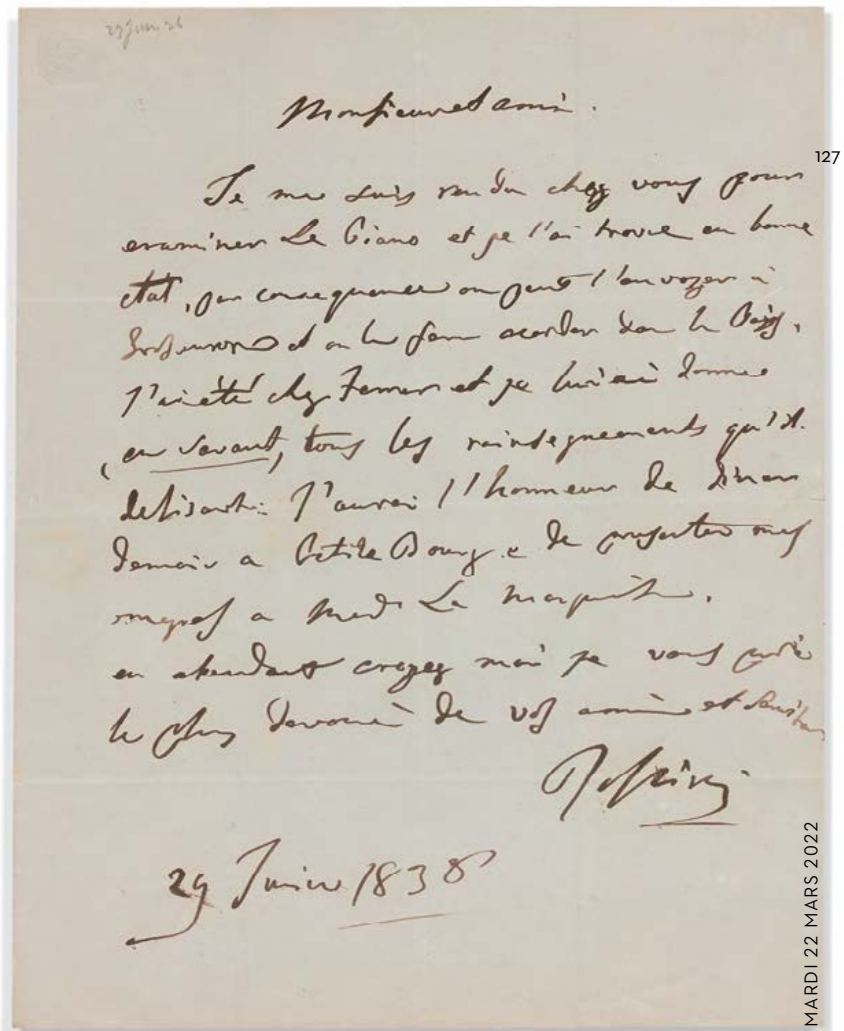 29 juin 36
Monsieur et ami.
127
Je me suis rendu chez vous pour
examiner Le Piano et je l'ai trouvé en bonne
état, par consequence on peut l'envoyer à
et on le fera acorder dan le Pays,
J'ai été chez Ferrer et je lui ai donné
(en savant) tous les raindegneements qu'il
desisait. J'aurai l'honneur de diner
demain a Petite Bourg e de presenter mes
a Mad. La Marquise.
en atendant croyez moi je vous prie
le plus devoué de vos amis et
Rossini
29 Juin 1838
MARDI 22 MARS 2022